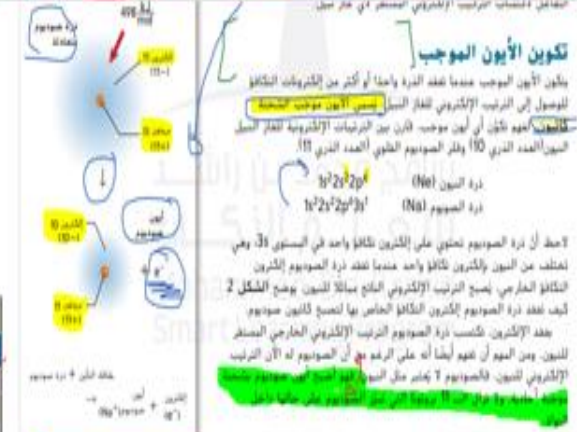 التفاعل لاكتساب الترتيب الإلكتروني المستقر لأي غاز نبيل.
تكوين الأيون الموجب
يتكون الأيون الموجب عندما تفقد الذرة واحدًا أو أكثر من إلكترونات التكافؤ
للوصول إلى الترتيب الإلكتروني للغاز النبيل. يسمى الأيون موجب الشحنة
كاتيون. لفهم تكوّن أي أيون موجب، قارن بين الترتيبات الإلكترونية للغاز النبيل
النيون (العدد الذري 10) وفلز الصوديوم القلوي (العدد الذري 11).
ذرة النيون (Ne) 1s²2s²2p⁶
ذرة الصوديوم (Na) 1s²2s²2p⁶3s¹
لاحظ أن ذرة الصوديوم تحتوي على إلكترون تكافؤ واحد في المستوى 3s، وهي
تختلف عن النيون بإلكترون تكافؤ واحد. عندما تفقد ذرة الصوديوم إلكترون
التكافؤ الخارجي، يصبح الترتيب الإلكتروني الناتج مماثلًا للنيون. يوضح الشكل 2
كيف تفقد ذرة الصوديوم إلكترون التكافؤ الخاص بها لتصبح كاتيون صوديوم.
بفقد الإلكترون، تكتسب ذرة الصوديوم الترتيب الإلكتروني الخارجي المستقر
للنيون. ومن المهم أن تفهم أيضًا أنه على الرغم من أن الصوديوم له الآن الترتيب
الإلكتروني للنيون، فالصوديوم لا يعتبر مثل النيون. فهو أصبح أيون صوديوم بشحنة
موجبة أحادية. ولا تزال الـ 11 بروتونًا التي تميز الصوديوم على حالها داخل
النواة.
498 kJ/mol
ذرة صوديوم
متعادلة
إلكترون 11
(11−)
بروتون 11
(11+)
أيون
صوديوم
إلكترون 10
(10−)
+ e⁻
بروتون 11
(11+)
طاقة التأين + ذرة صوديوم
→ أيون صوديوم (Na⁺) + إلكترون (e⁻)